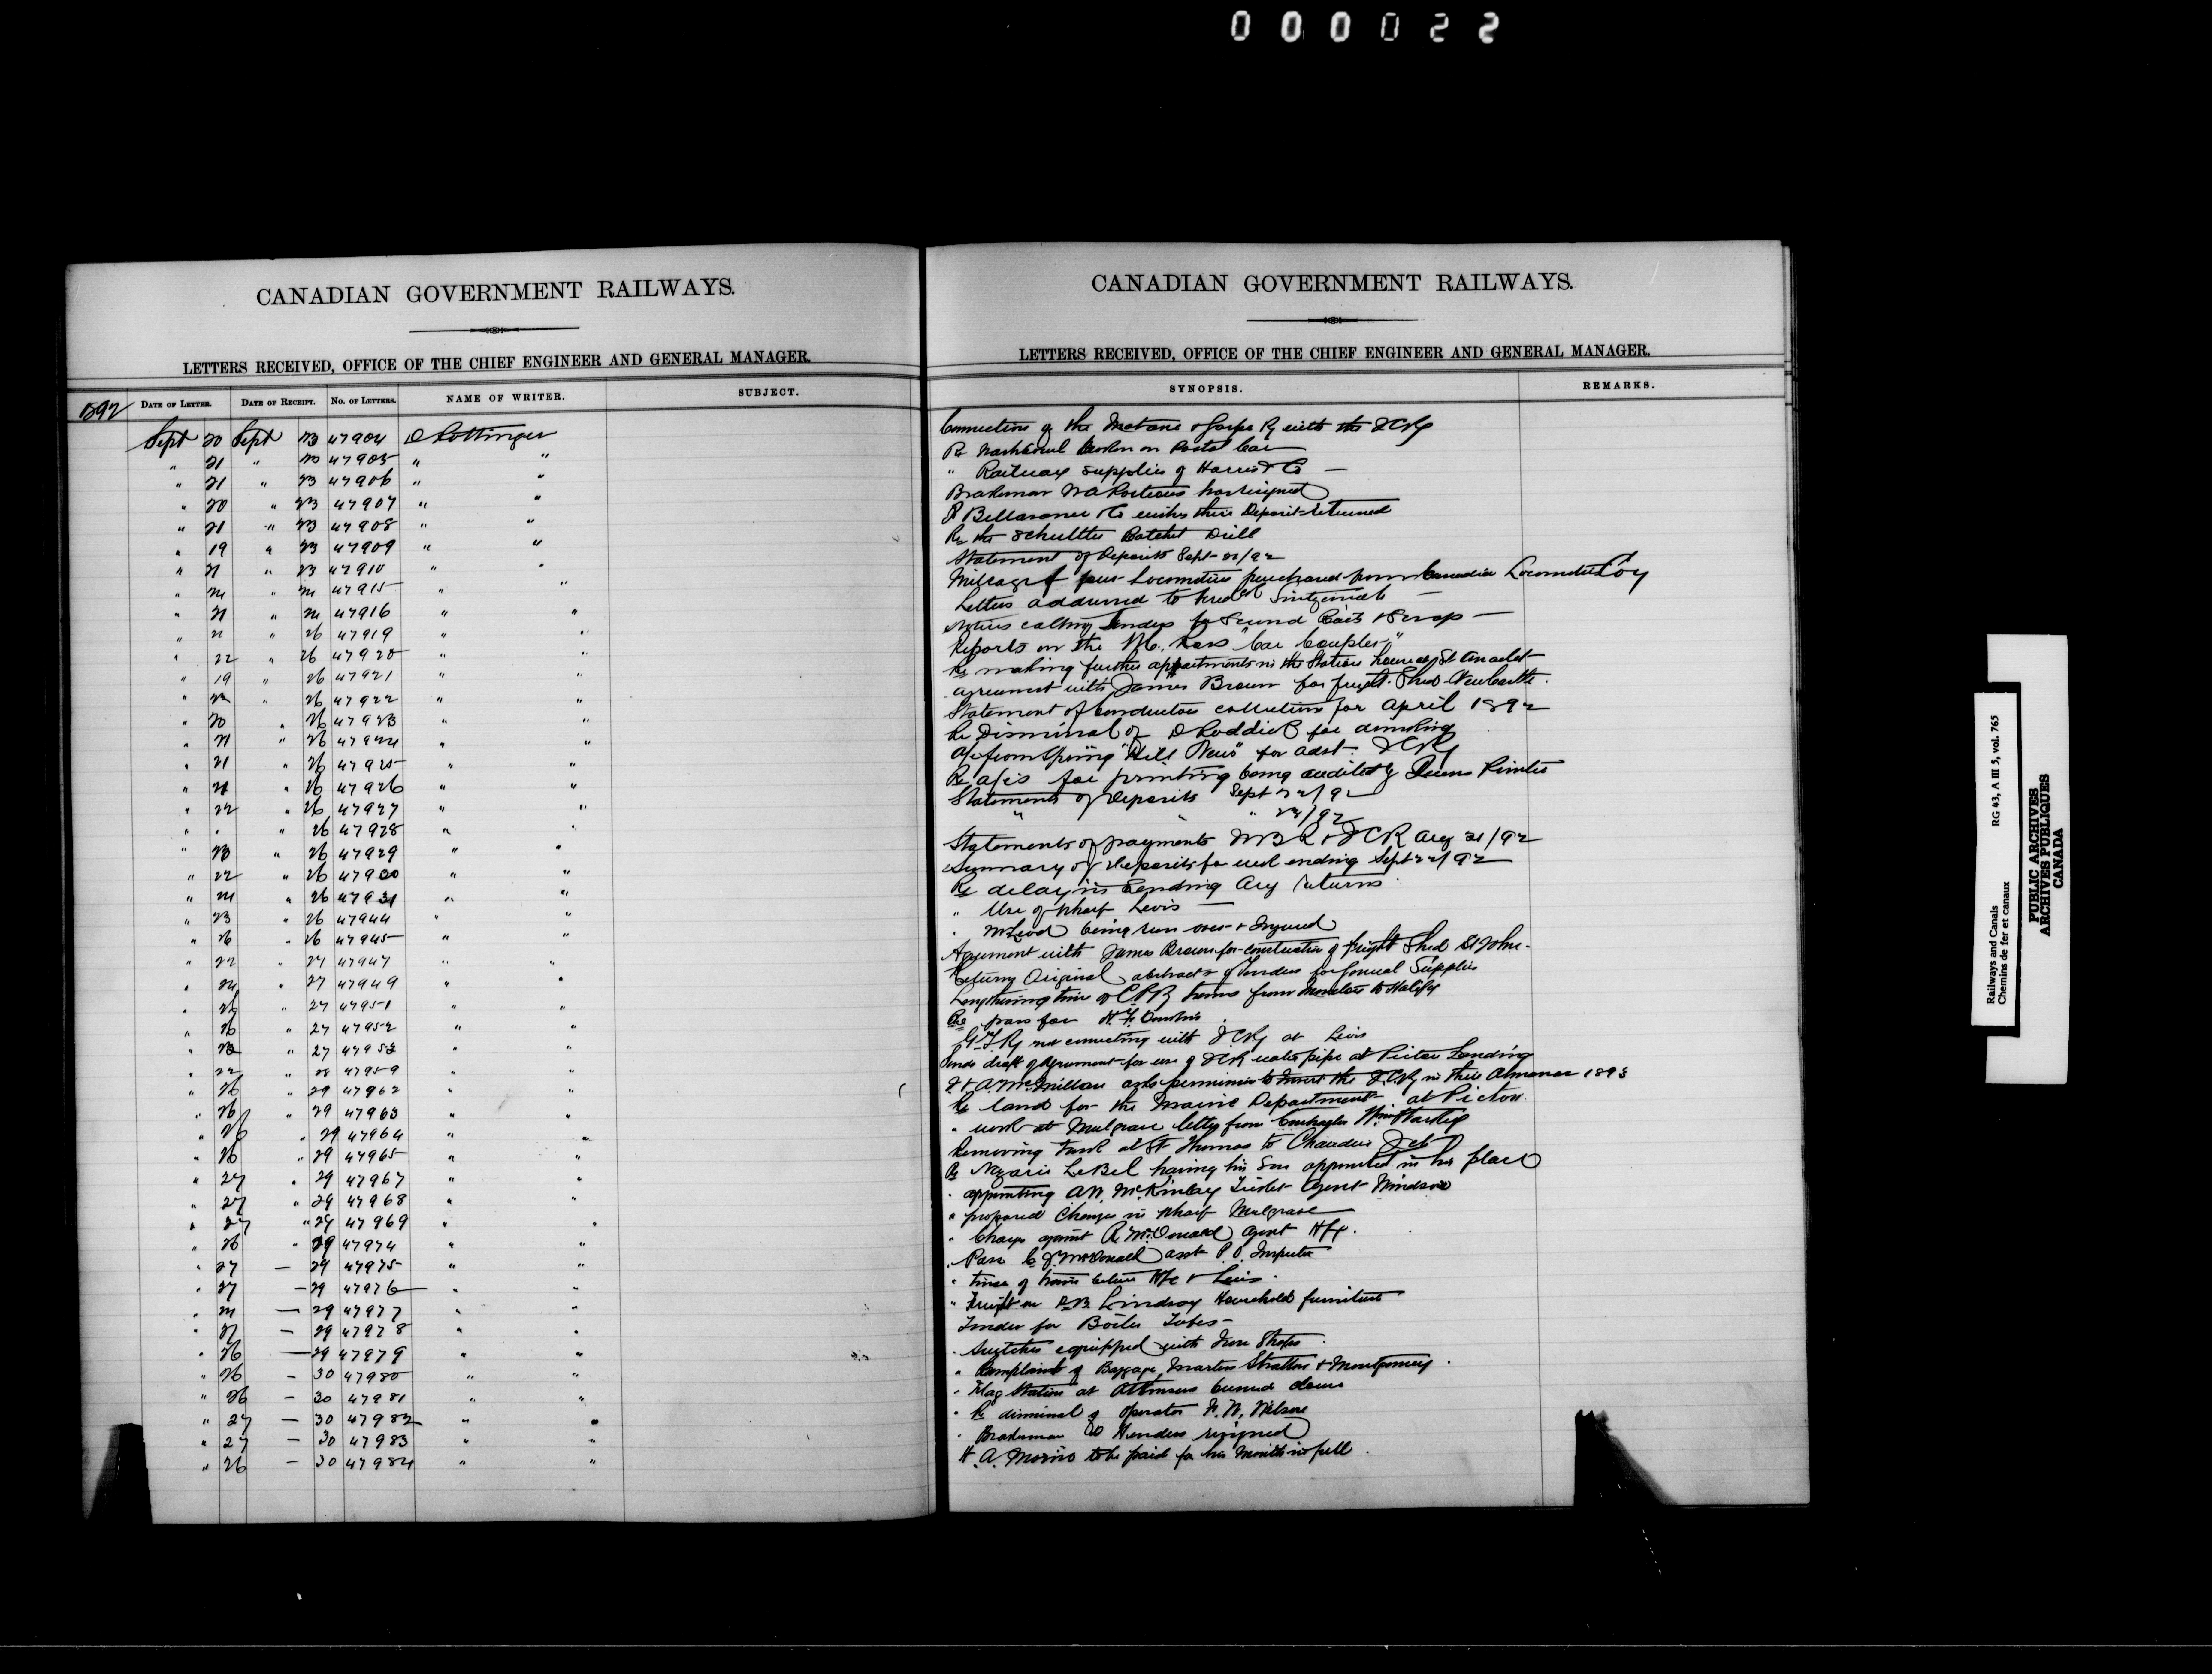 000022
CANADIAN GOVERNMENT RAILWAYS.
LETTERS RECEIVED, OFFICE OF THE CHIEF ENGINEER AND GENERAL MANAGER.
1892 DATE OF LETTER. DATE OF RECEIPT. NO. OF LETTERS. NAME OF WRITER. SUBJECT.
Sept 20 Sept 23 47904 D Pottinger
" 21 " 23 47905 " "
" 21 " 23 47906 " "
" 20 " 23 47907 " "
" 21 " 23 47908 " "
" 19 " 23 47909 " "
" 21 " 23 47910 " "
" " 47915 " "
" 21 " 47916 " "
" 21 " 26 47919 " "
" 22 " 26 47920 " "
" 19 " 26 47921 " "
" 22 " 26 47922 " "
" 20 " 26 47923 " "
" 21 " 26 47924 " "
" 21 " 26 47925 " "
" 21 " 26 47926 " "
" 22 " 26 47927 " "
" " " 26 47928 " "
" 23 " 26 47929 " "
" 22 " 26 47930 " "
" " 26 47931 " "
" 23 " 26 47944 " "
" 26 " 26 47945 " "
" 22 " 27 47947 " "
" 24 " 27 47949 " "
" 26 " 27 47951 " "
" 26 " 27 47952 " "
" 23 " 27 47953 " "
" 22 " 28 47959 " "
" 26 " 29 47962 " "
" 26 " 29 47963 " "
" 26 " 29 47964 " "
" 26 " 29 47965 " "
" 27 " 29 47967 " "
" 27 " 29 47968 " "
" 27 " 29 47969 " "
" 26 " 29 47974 " "
" 27 — 29 47975 " "
" 27 — 29 47976 " "
" — 29 47977 " "
" 27 — 29 47978 " "
" 26 — 29 47979 " "
" 26 — 30 47980 " "
" 26 — 30 47981 " "
" 27 — 30 47982 " "
" 27 — 30 47983 " "
" 26 — 30 47984 " "
CANADIAN GOVERNMENT RAILWAYS.
LETTERS RECEIVED, OFFICE OF THE CHIEF ENGINEER AND GENERAL MANAGER.
SYNOPSIS. REMARKS.
Connection of the Metane & Gaspe Ry with the ICRy
Re on Postal Car
" Railway supplies of Harris & Co —
Brakeman has resigned
& Co wishes their Deposit returned
Re the Ratchet Drill
Statement of Deposits Sept 21/92
Mileage of four Locomotives purchased from Canadian Locomotive Coy
Letters addressed to —
Notices calling tenders for Second Rails & Scrap —
Reports on the Mc. Ross "Car Coupler"
Re making further apartments in the Station house at St Anaclet
Agreement with James Brown for freight Shed Newcastle.
Statement of Conductors collection for April 1892
Re Dismissal of D Roddick for drinking
A/c from Spring "Hill News" for advt. ICRy
Re a/cs for printing being audited by Queens Printer
Statements of Deposits Sept 22/92
" " " 23/92
Statements of payments WBR & ICR Aug 31/92
Summary of Deposits for week ending Sept 22/92
Re delay in Sending Aug returns
" Use of Wharf Levis —
" McLeod being run over & Injured
Agreement with James Brown for construction of freight Shed St John.
Returns Original abstracts of tenders for Annual Supplies
Lengthening time of CPR trains from Moncton to Halifax
Re pass for H. F.
GTRy not connecting with ICRy at Levis
Sends draft of Agreement for use of ICRy water pipe at Pictou Landing
J & A McMillan asks permission to Insert the ICRy in their Almanac 1893
Re land for the Marine Department at Pictou
" work at Mulgrave letter from Contractor Wm
Removing tank at St Thomas to Chaudiere Jct
Re Nazaire LeBel having his Son appointed in his place
" appointing A.W. McKinlay Ticket Agent Windsor
" proposed Changes in Wharf Mulgrave
" Charge against R. McDonald Agent Hfx.
" Pass C J McDonald asst P.O. Inspector
" time of trains between Hfx & Levis.
" Freight on Lindsay Household furniture
Tender for Boiler Tubes —
" Switches equipped with Iron Straps
" Complaint of Baggage, Martin Stratton & Montgomery.
" Flag Station at burned down
" Re dismissal of operator F. W. Wilson
" Brakeman W Henders resigned
H. A. to be paid for his Month in full.
Railways and Canals RG 43, A III 5, vol. 765
Chemins de fer et canaux
PUBLIC ARCHIVES
ARCHIVES PUBLIQUES
CANADA